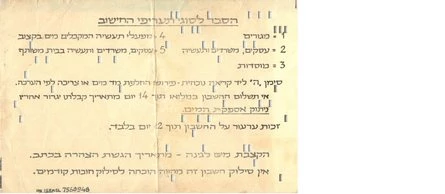 הסבר לסוגי תעריפי החישוב
1 = מגורים 4 = מפעלי תעשיה המקבלים מים בקצוב
2 = עסקים, משרדים ותעשיה 5 = עסקים, משרדים ותעשיה בבית משותף
3 = מוסדות.
סימן "ה" ליד קריאה נוכחית - פירושו החלפת מד מים או צריכה לפי הערכה.
אי תשלום החשבון במלואו תוך 14 יום מתאריך קבלתו יגרור אחריו
ניתוק אספקת המים.
זכות ערעור על החשבון תוך יום בלבד.
הקצבת מים לגנה - מתאריך הגשת הצהרה בכתב.
אין סילוק חשבון זה מהווה הוכחה לסילוק חובות קודמים.